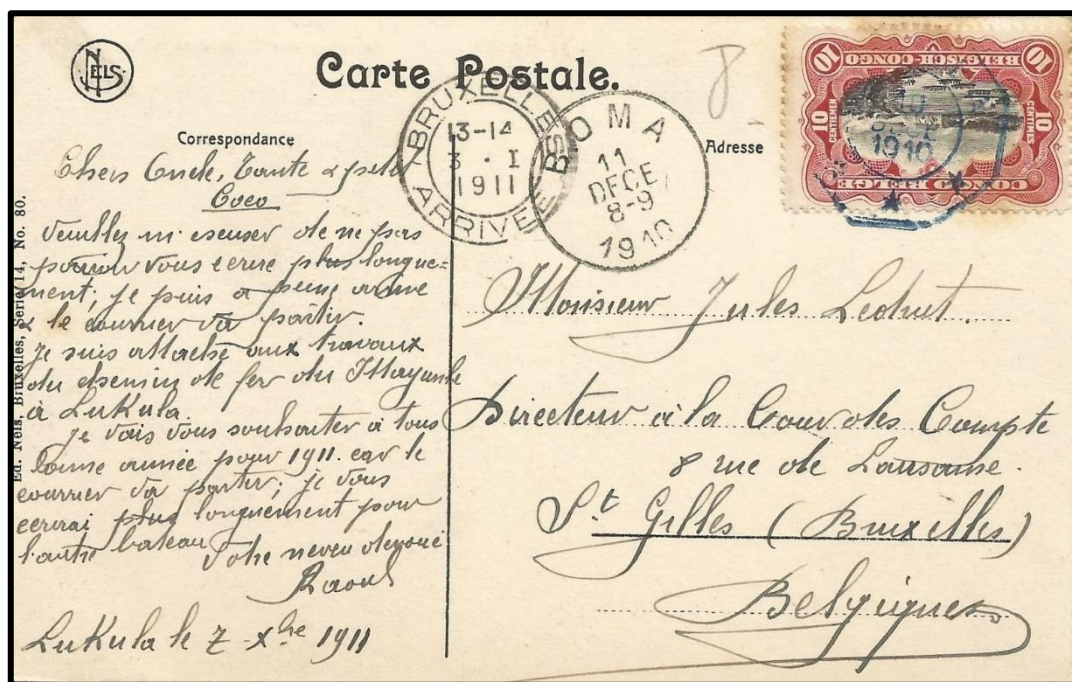 NELS
Carte Postale.
Correspondance
Adresse
BRUXELLES
13-14
3 . I
1911
ARRIVEE
BOMA
11
DECE
8-9
1910
8
10 10
BELGISCH-CONGO
CENTIEMEN 10
10 CENTIMES
CONGO BELGE
10
1910
Chers Oncle, Tante & petit
Coco
Veuillez m'escuser de ne pas
pouvoir vous ecrire plus longue=
ment, je puis a peine arrive
& le courrier va partir.
Je suis attaché aux travaux
du chemin de fer du Mayumbe
à LuKula.
Je vais vous souhaiter à tous
bonne année pour 1911. car le
courrier va partir; je vous
ecrirai plus longuement pour
l'autre bateau
Votre neveu devoué
Raoul
LuKula le 7 Xbre 1911
Monsieur Jules Ledrut.
Directeur à la Cour des Compte
8 rue de Lausanne.
St Gilles (Bruxelles)
Belgique
Ed. Nels, Bruxelles, Serie 14, No. 80.